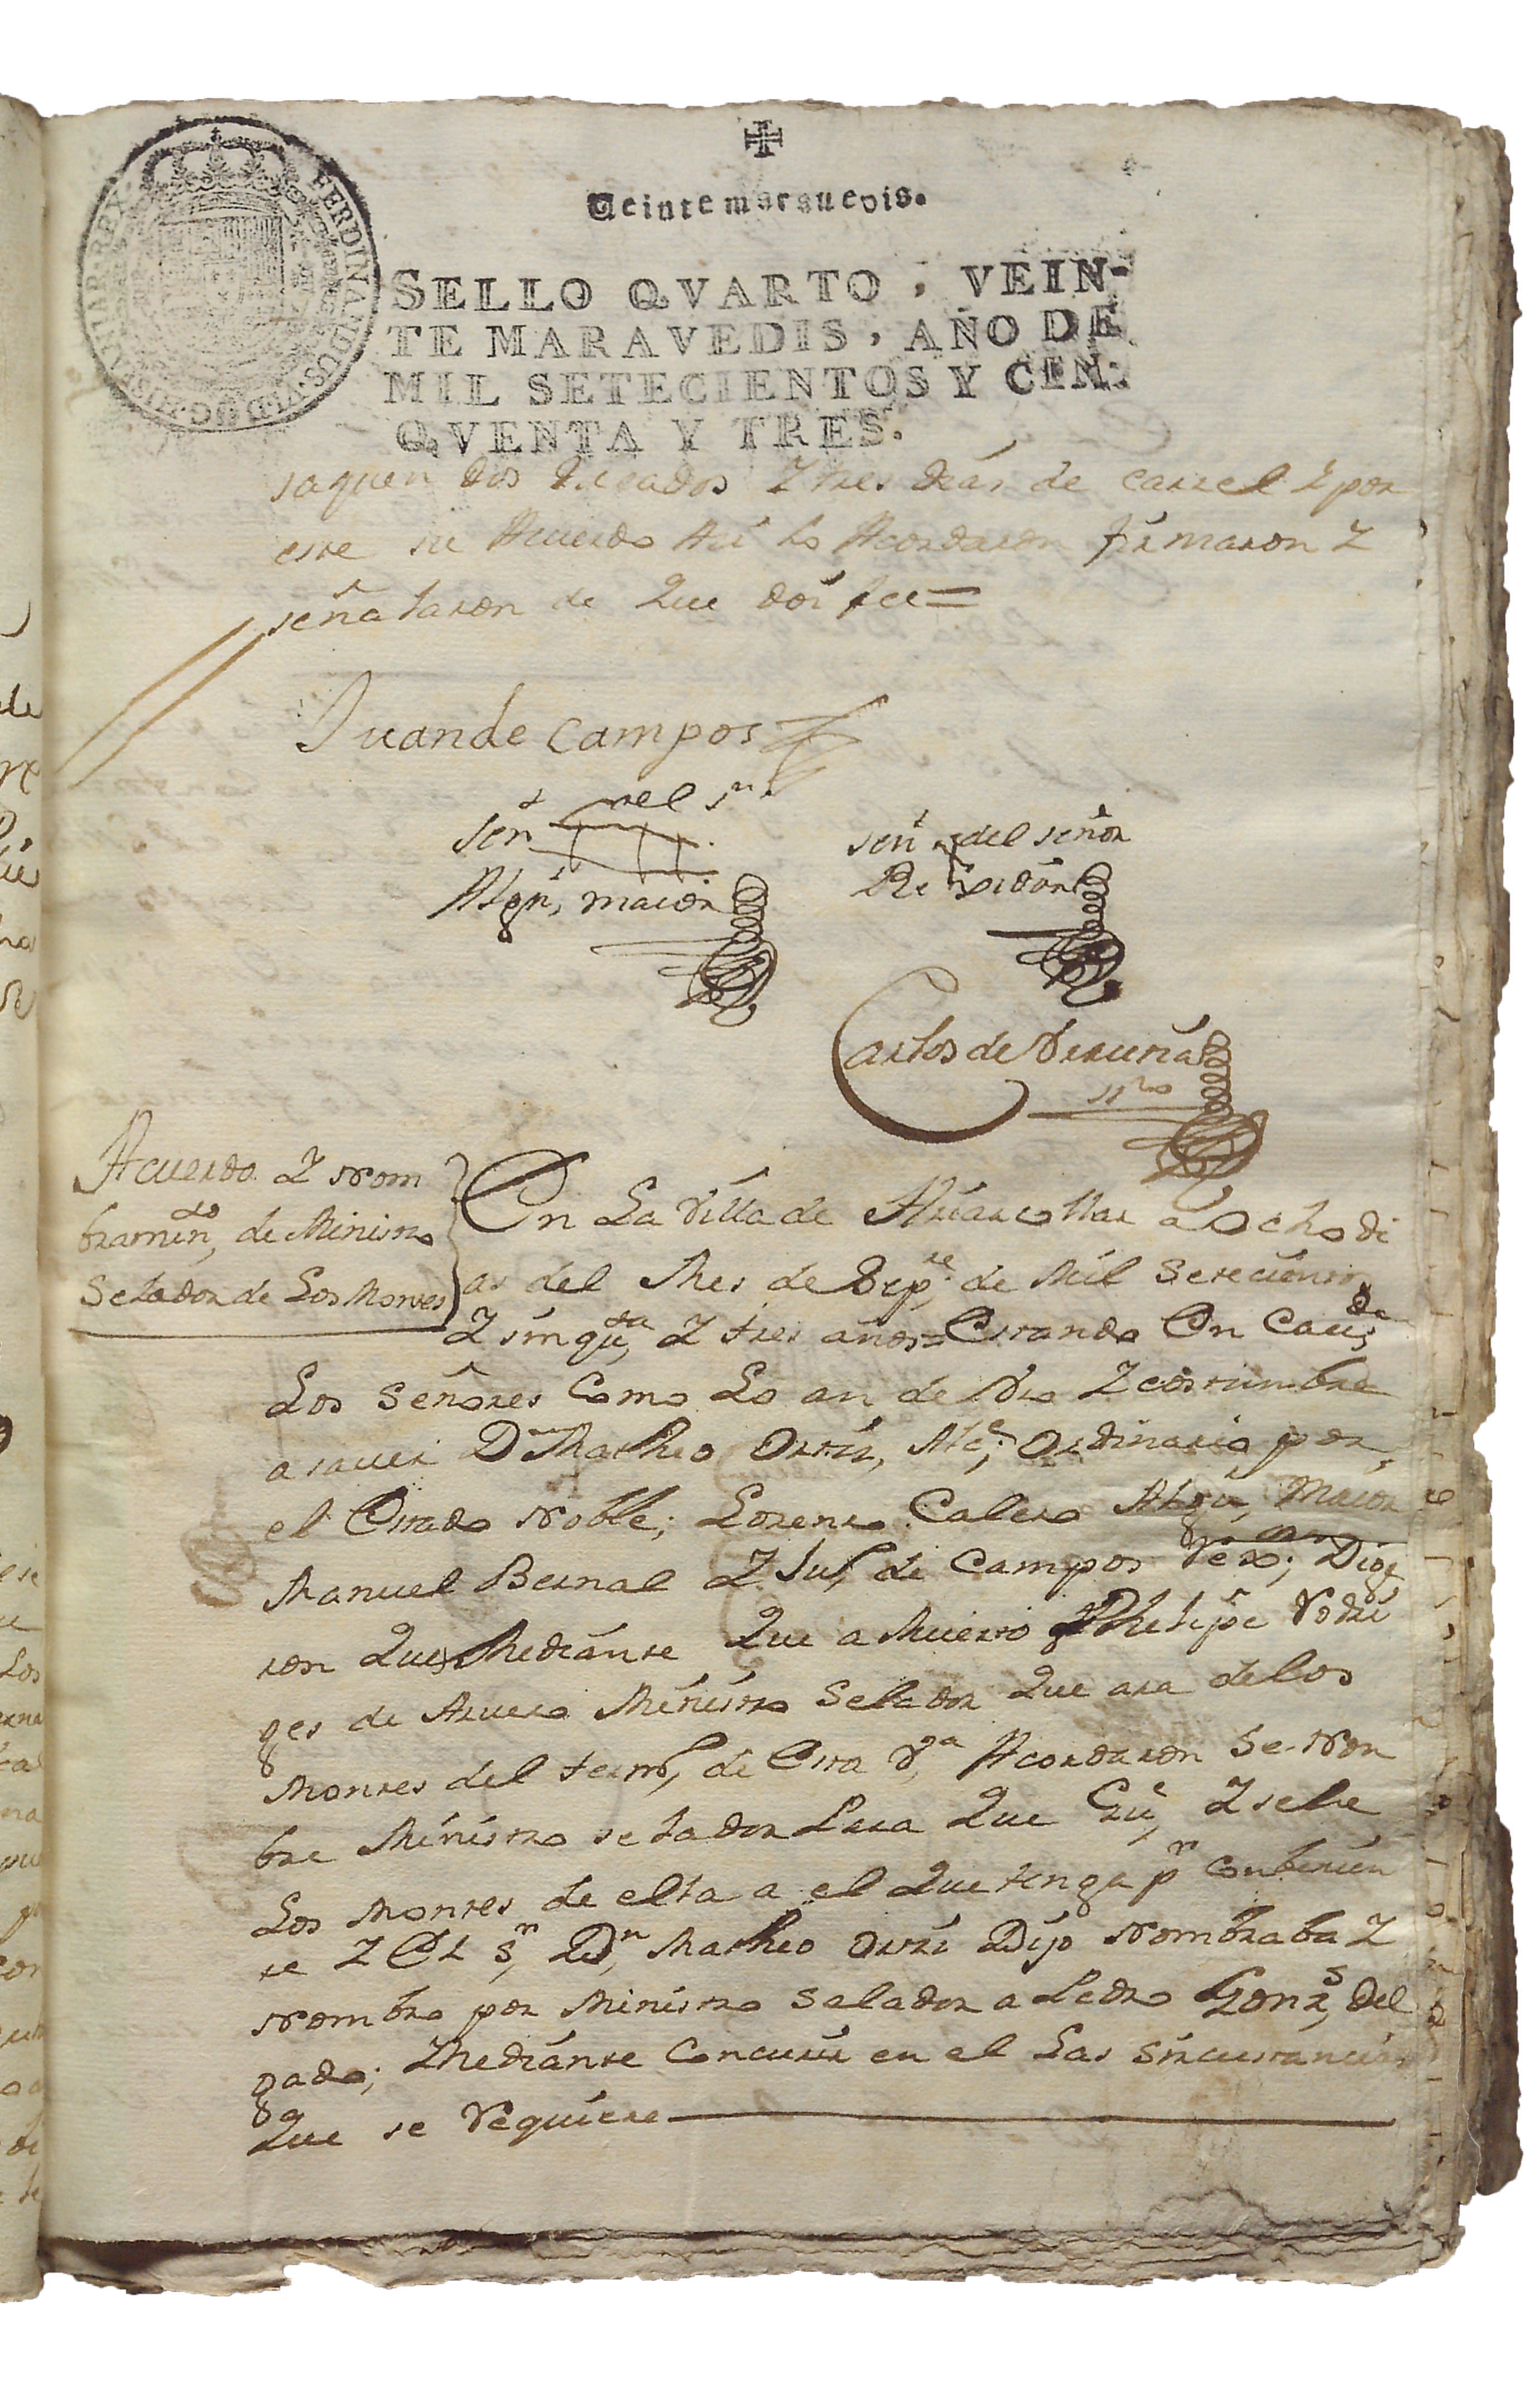 Veinte maravedis.
SELLO QVARTO, VEIN-
TE MARAVEDIS, AÑO DE
MIL SETECIENTOS Y CIN-
QVENTA Y TRES.
FERDINANDUS VI D G HISPANIAR REX
saquen dos ducados Y tres días de carzel Y por
este su Acuerdo Asi lo Acordaron firmaron Y
señalaron de Que doi fee=
Juan de Campos
señ del sr.
Algl, maior
señ del señor
Rexidor
Carlos de Vicuña
ssno
Acuerdo Y Nom
bramnto, de Ministro
Selador de Los Montes
En La Villa de Almar a Ocho di
as del Mes de Sepre, de Mil Setecientos
Y sinquta, Y tres años= Estando En Cavdo
Los Señores Como Lo an de Vso Y costumbre
a saver Dn Matheo Ortiz, Alce, Ordinario por
el Estado Noble; Lorenzo Calero Algl, Maior
Manuel Bernal Y Jun, de Campos Rexs; Dige
ron Que Mediante Que a Muerto Phelipe Rodri
ges de Arvero Ministro Selador Que ara de los
Montes del termo, de Esta Va Acordaron Se Non
bre Ministro selador Para Que Gue, Y sele
Los Montes de ella a el Que tenga pr Conbenien
te Y El Sr, Dn, Matheo Orti Dijo Nombraba Y
Nombro por Ministro Salador a Pedro Gonzs, Del
gado; Mediante Concurir en el Las Sircustancias
Que se Requiere